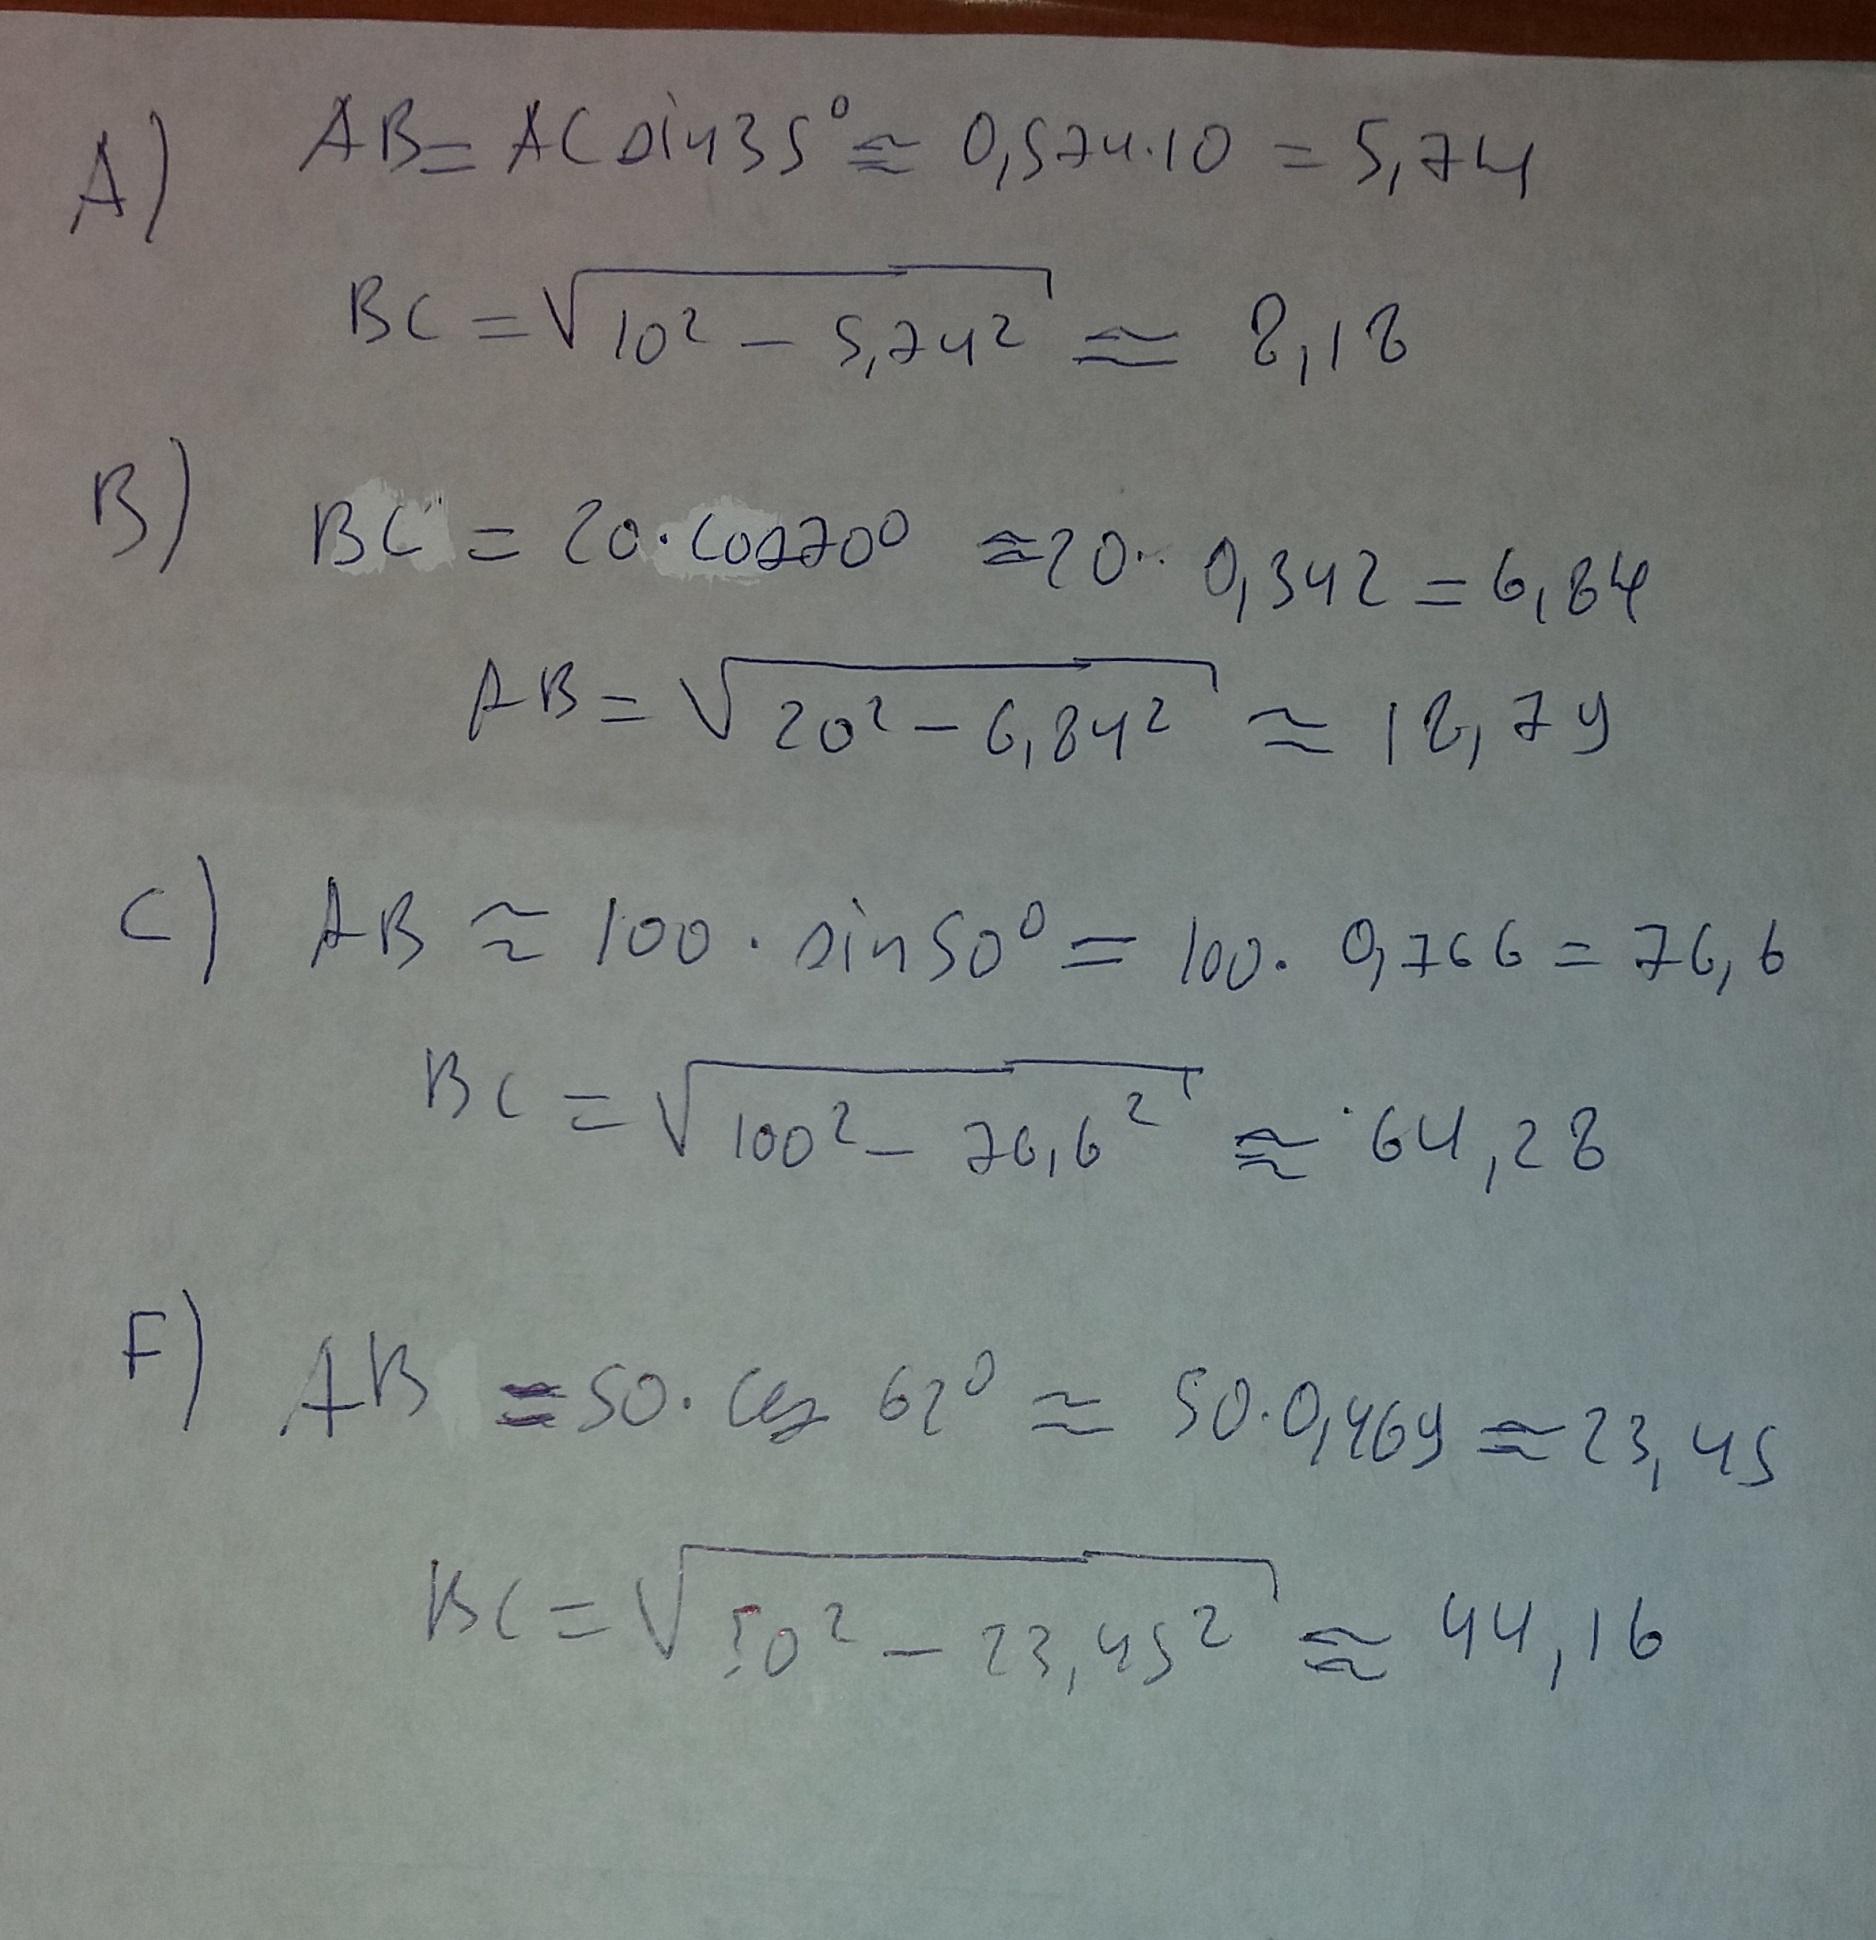 A) AB = AC sin 35° ≅ 0,574·10 = 5,74
BC = √(10² - 5,74²) ≈ 8,18
B) BC = 20·cos70° ≅ 20·0,342 = 6,84
AB = √(20² - 6,84²) ≈ 18,79
C) AB ≈ 100·sin50° = 100·0,766 = 76,6
BC = √(100² - 76,6²) ≅ 64,28
F) AB = 50·cos 62° ≈ 50·0,469 ≅ 23,45
BC = √(50² - 23,45²) ≅ 44,16